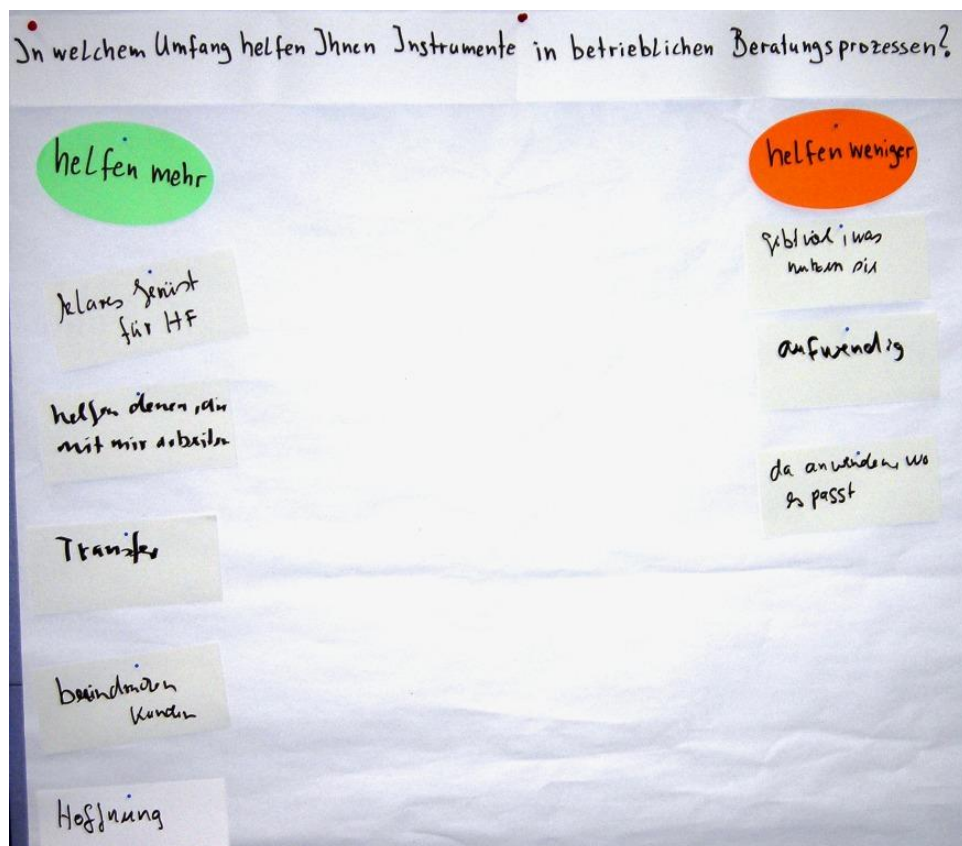 In welchem Umfang helfen Ihnen Instrumente in betrieblichen Beratungsprozessen?
helfen mehr
klares Gerüst
für HF
helfen denen, die
mit mir arbeiten
Transfer
beeindrucken
Kunden
Hoffnung
helfen weniger
gibt viel, was
nutzen sie
aufwendig
da anwenden, wo
es passt